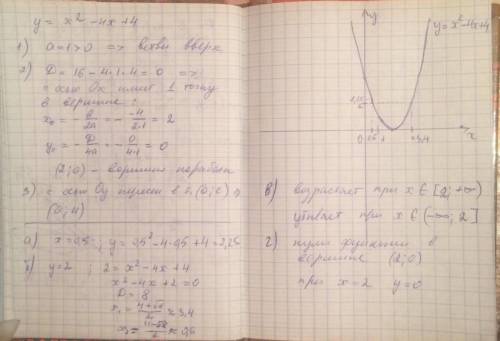 y = x² - 4x + 4
1) a = 1 > 0 => ветви вверх
2) D = 16 - 4·1·4 = 0 =>
с осью Ox имеет 1 точку
в вершине:
x₀ = -b/2a = - -4/2·1 = 2
y₀ = -D/4a = -0/4·1 = 0
(2;0) - вершина параболы
3) с осью Oy в т. (0; c)
(0; 4)
а) x = 0,5; y = 0,5² - 4·0,5 + 4 = 2,25
б) y = 2; 2 = x² - 4x + 4
x² - 4x + 2 = 0
D = 8
x₁ = (4+√8)/2 ≈ 3,4
x₂ = (4-√8)/2 ≈ 0,6
y
y = x² - 4x + 4
x
0
1
3,4
в) возрастает при x ∈ [2; +∞)
убывает при x ∈ (-∞; 2]
г) нули функции в
вершине (2; 0)
при x = 2 y = 0